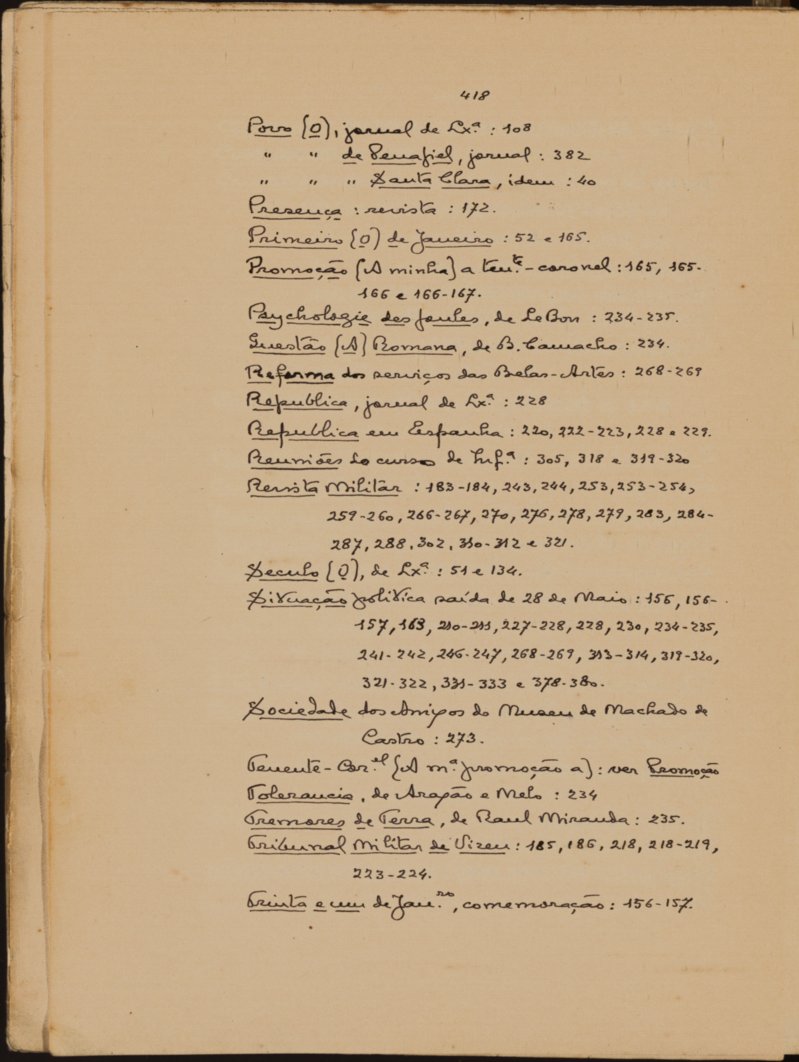 418
Povo (O), jornal de Lx.ª : 108
" " de Penafiel, jornal : 382
" " " Santa Clara, idem : 40
Presença : revista : 172.
Primeiro (O) de Janeiro : 52 e 165.
Promoção (A minha) a ten.te-coronel : 165, 165-
166 e 166-167.
Psychologie des foules, de Le Bon : 234-235.
Questão (A) Romana, de B. Camacho : 234.
Reforma dos serviços das Belas-Artes : 268-269
Republica, jornal de Lx.ª : 228
Republica em Espanha : 220, 222-223, 228 e 229.
Reuniões do curso de Inf.ª : 305, 318 e 319-320
Revista Militar : 183-184, 243, 244, 253, 253-254,
259-260, 266-267, 270, 276, 278, 279, 283, 284-
287, 288, 302, 310-312 e 321.
Seculo (O), de Lx.ª : 51 e 134.
Situação politica saída de 28 de Maio : 156, 156-
157, 163, 210-211, 227-228, 228, 230, 234-235,
241-242, 246-247, 268-269, 313-314, 319-320,
321-322, 331-333 e 378-380.
Sociedade dos Amigos do Museu de Machado de
Castro : 273.
Tenente-Cor.el (A m.ª promoção a) : ver Promoção
Tolerancia, de Aragão e Melo : 234
Tremores de Terra, de Raul Miranda : 235.
Tribunal Militar de Vizeu : 185, 186, 218, 218-219,
223-224.
Trinta e um de Jan.ro, comemoração : 156-157.